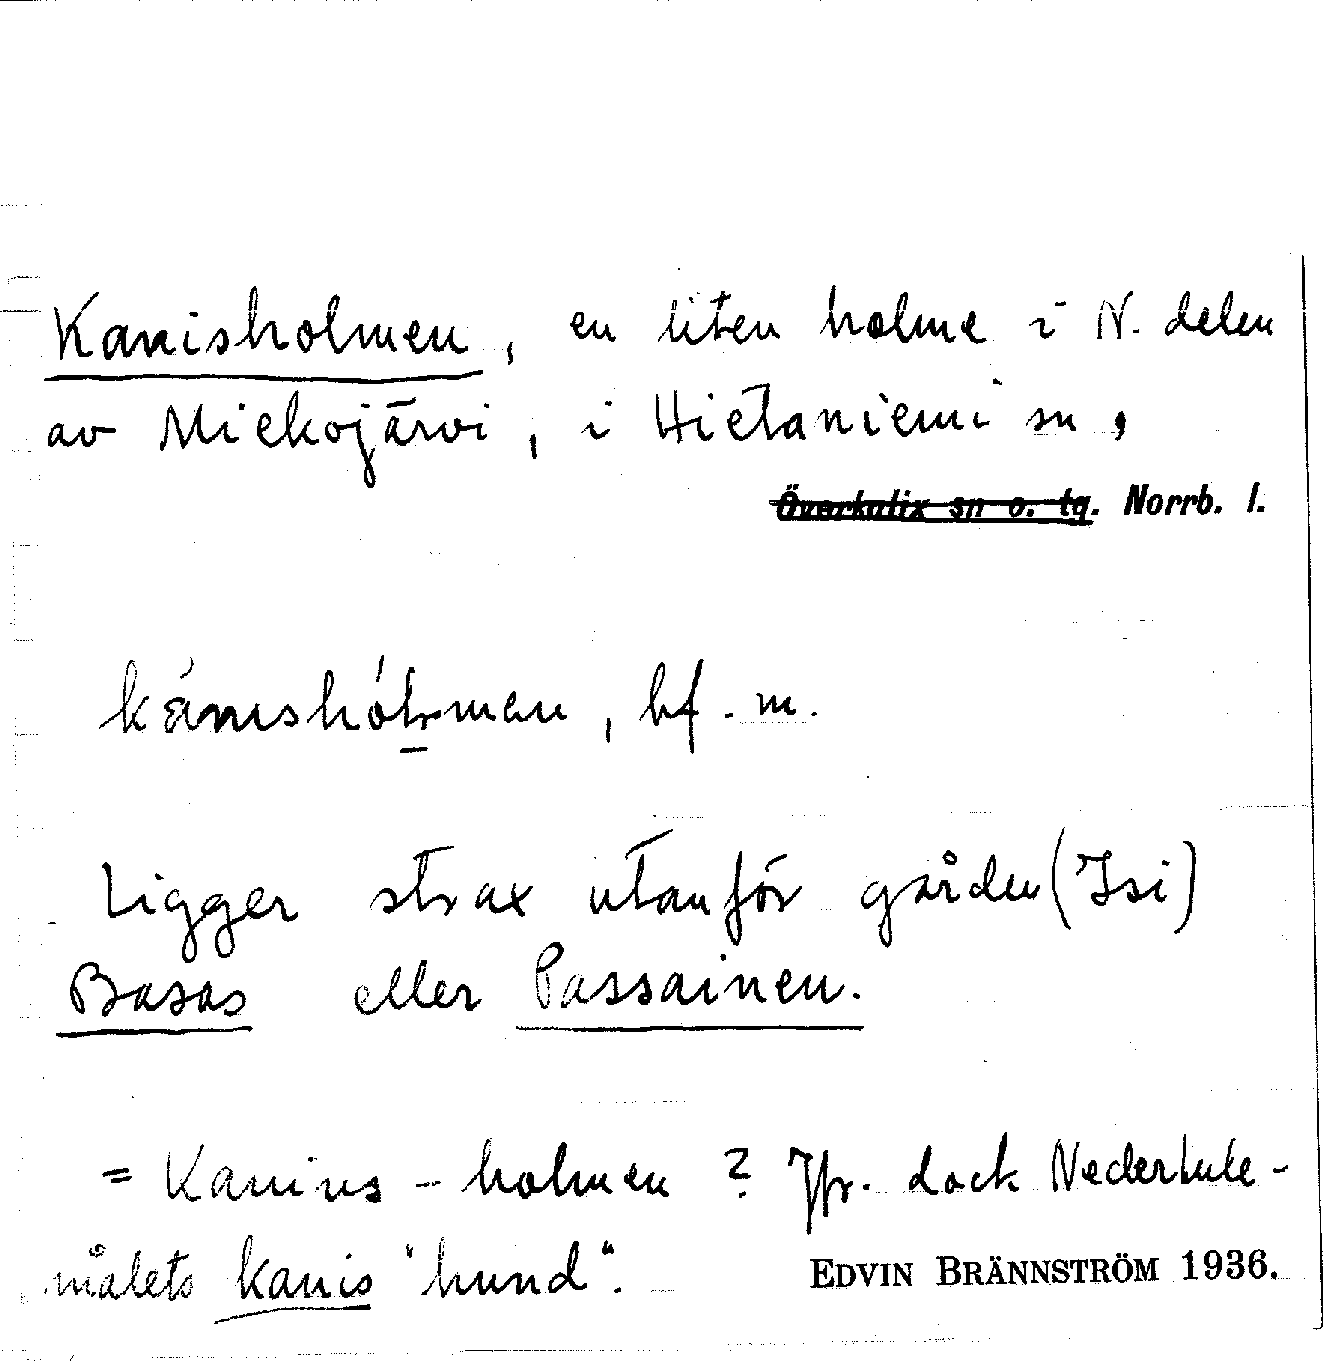 Kanisholmen, en liten holme i N. delen
av Miekojärvi, i Hietaniemi sn,
Överkalix sn o. tg. Norrb. l.
kánishóļmen, bf. m.
Ligger strax utanför gården (Isi)
Basas eller Passainen.
= Kanius-holmen? Jfr. dock Nederlule-
målets kanis "hund".
EDVIN BRÄNNSTRÖM 1936.